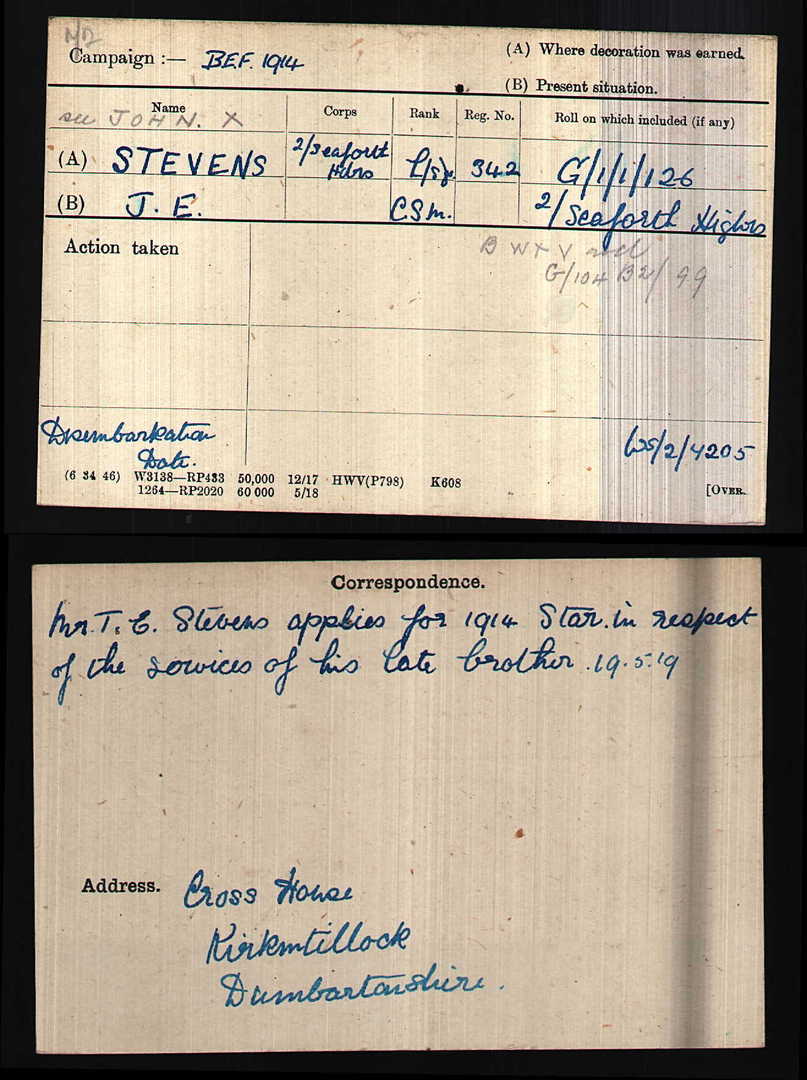 Campaign :— B.E.F. 1914
(A) Where decoration was earned.
(B) Present situation.
Name Corps Rank Reg. No. Roll on which included (if any)
see JOHN. X
(A) STEVENS 2/Seaforth Hdrs L/Sjt. 342 G/1/1/126
(B) J. E. C.S.M. 2/Seaforth Highrs
Action taken
B W & V
G/104 B2/99
Disembarkation
Date.
WS/2/4205
(6 34 46) W3138—RP433 50,000 12/17 HWV(P798) K608
1264—RP2020 60 000 5/18 [OVER.
Correspondence.
Mr. T. E. Stevens applies for 1914 Star. in respect
of the services of his late brother. 19.5.19
Address. Cross House
Kirkintillock
Dumbartonshire.